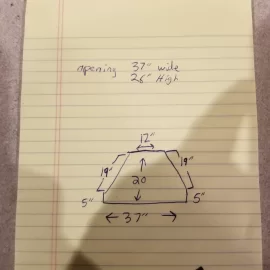 opening 37" wide
26" High
12"
19" 19"
20
5" 5"
37"